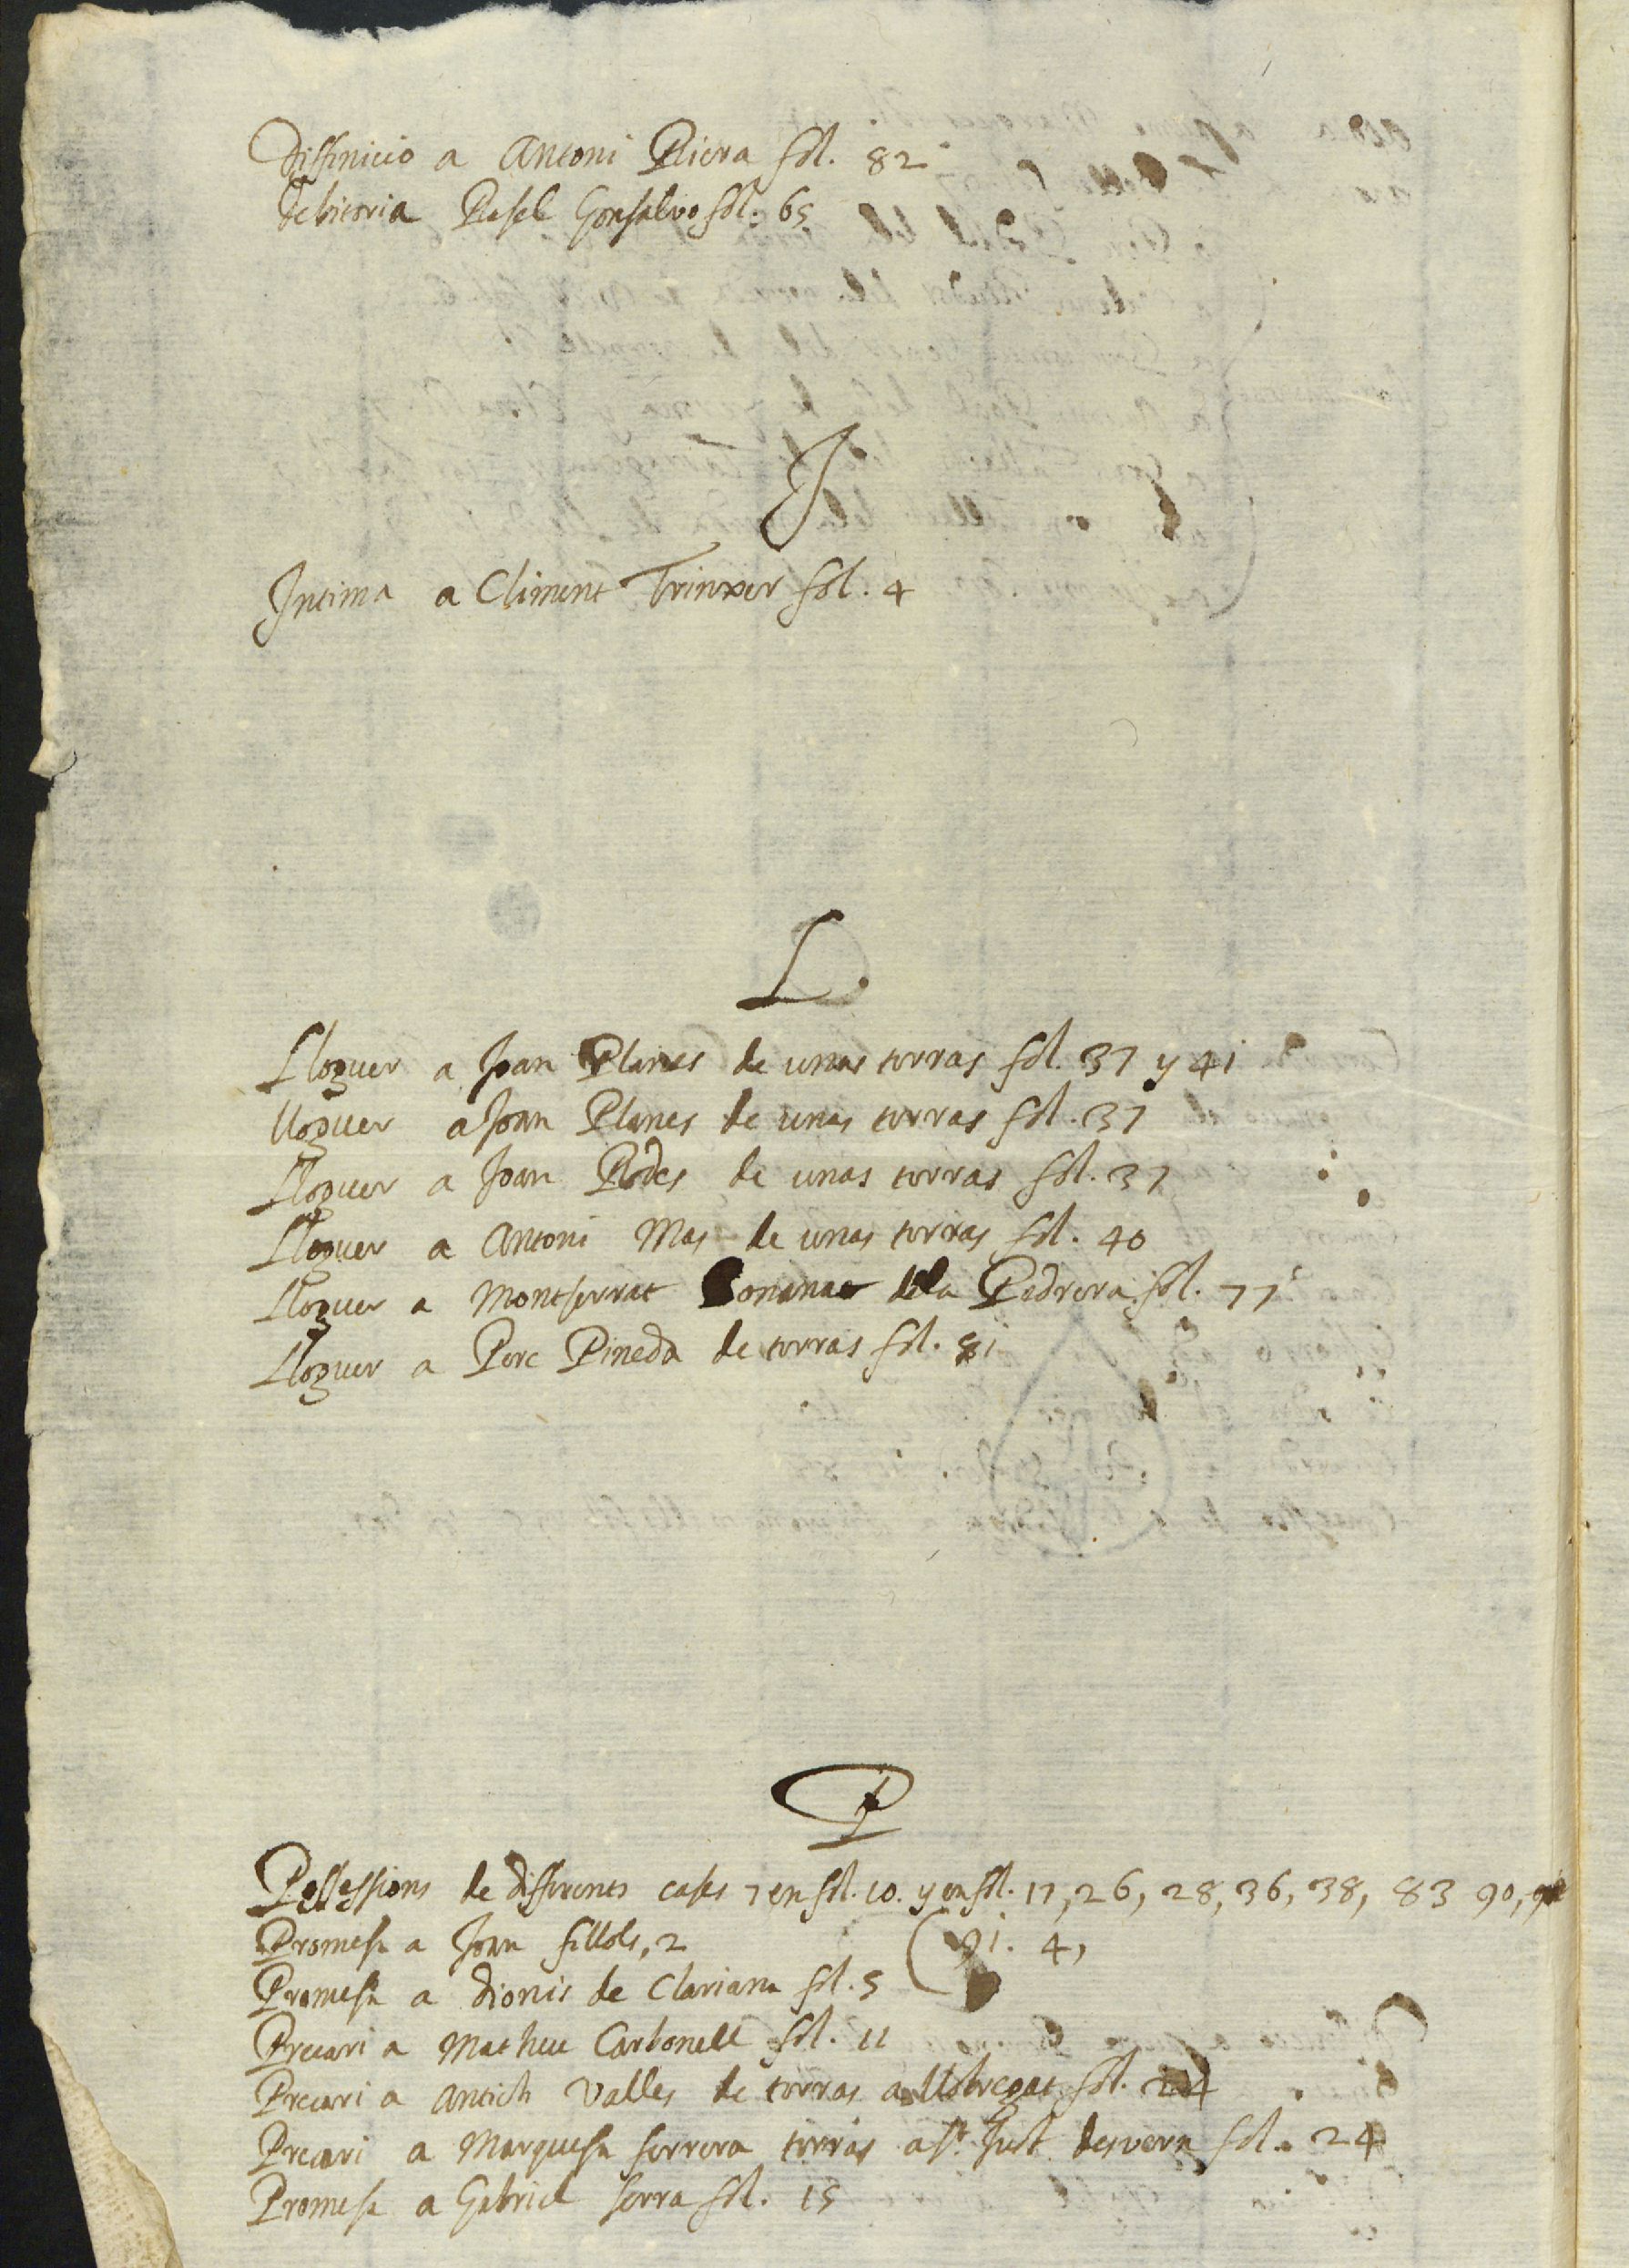 Diffinicio a Antoni Riera fol. 82
Debitoria Rafel Gonsalvo fol. 65
I
Intima a Climent Trinxer fol. 4
L.
Lloguer a Joan Planes de unas terras fol. 37 y 41
lloguer a Joan Planes de unas terras fol. 37
Lloguer a Joan Rodes de unas terras fol. 37
Lloguer a Antoni Mas de unas terras fol. 40
Lloguer a Montserrat dela Pedrera fol. 77
Lloguer a Pere Pineda de terras fol. 81
P
Possessions de differents cases 7 en fol. 10. y en fol. 17, 26, 28, 36, 38, 83 90,
Promesa a Joan fillols, 2 (91. 4,
Promesa a Dionis de Clariana fol. 5
Precari a Matheu Carbonell fol. 11
Precari a Antich Valles de terras a Llobregat fol. 24
Precari a Marquesa ferrera terras a st. Just desvern fol. 24
Promesa a Gabriel serra fol. 15